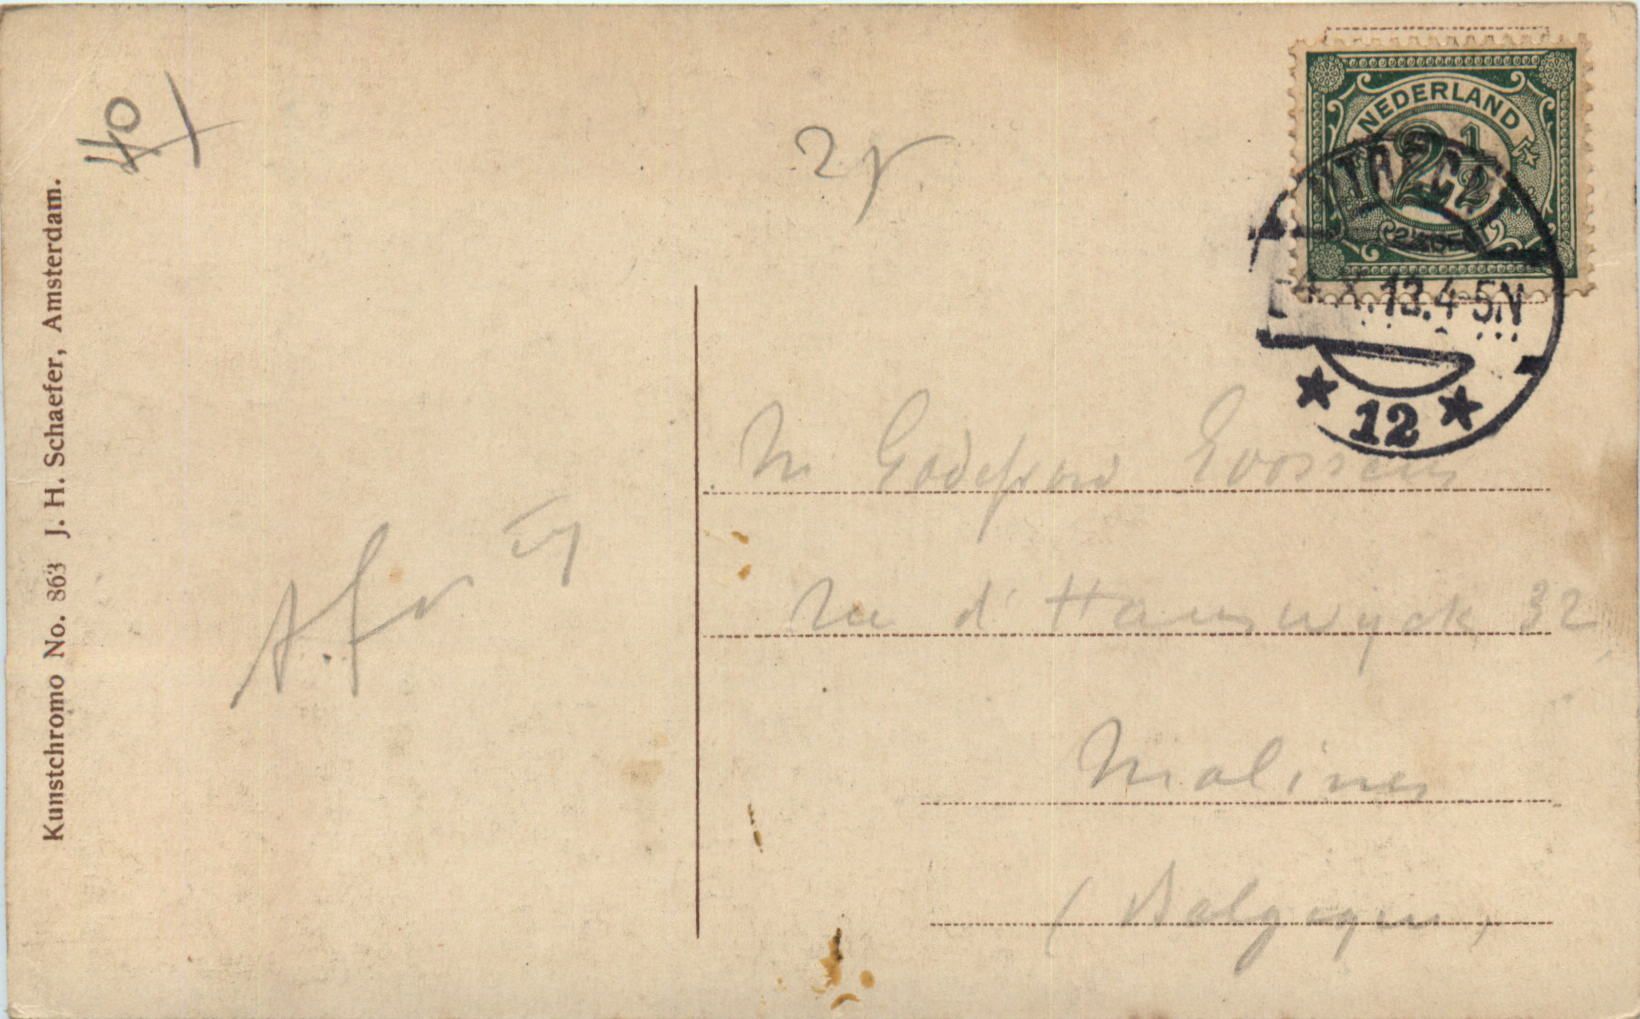 Kunstchromo No. 863 J. H. Schaefer, Amsterdam.
40
NEDERLAND
2½
UTRECHT
X.13.4-5N
12
M Godefroid
Rue d' Hanswyck 32
Malines
(Belgique)